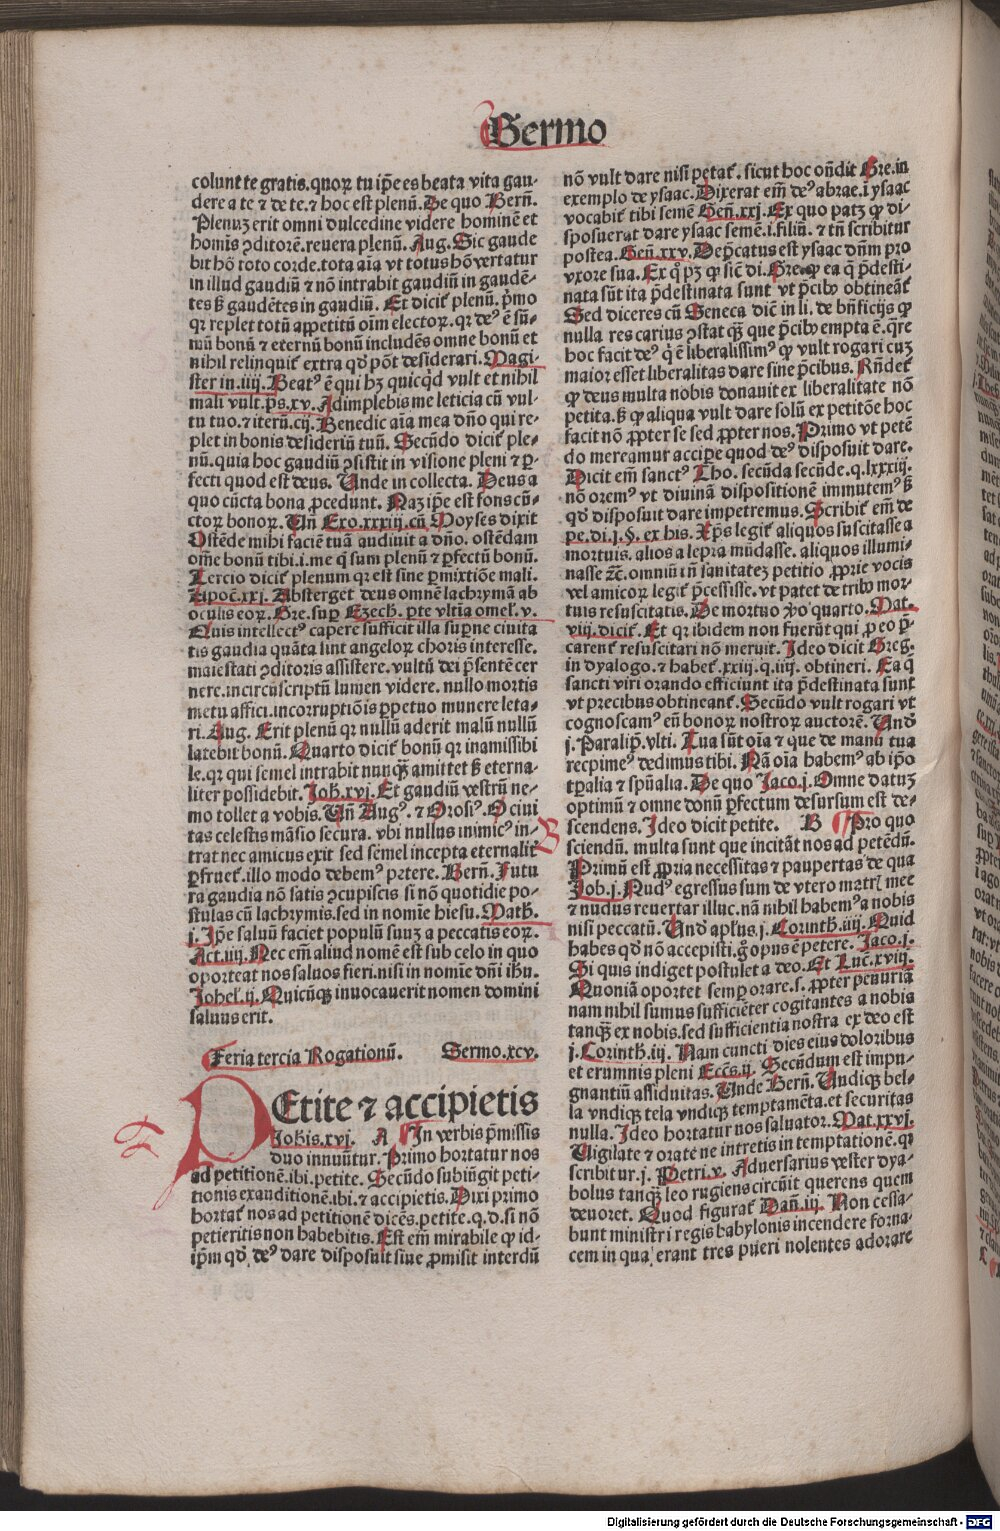 Sermo
colunt te gratis. quoꝝ tu ip̄e es beata vita gau-
dere a te ⁊ de te. ⁊ hoc est plenū. De quo Bern̄.
Plenuꝫ erit omni dulcedine videre hominē et
homīs ꝯditorē. reuera plenū. Aug. Sic gaude
bit hō toto corde. tota aīa vt totus hō vertatur
in illud gaudiū ⁊ nō intrabit gaudiū in gaudē-
tes ß gaudētes in gaudiū. Et dicit̉ plenū. p̄mo
qꝛ replet totū appetitū oīm electoꝝ. qꝛ deꝰ ē sū-
mū bonū ⁊ eternū bonū includēs omne bonū et
nihil relinquit̉ extra qd̓ pōt desiderari. Magi-
ster in .iiij. Beatꝰ ē qui hꝫ quicq̇d vult et nihil
mali vult. ps̄. xv. Adimplebis me leticia cū vul-
tu tuo. ⁊ iterū. cij. Benedic aīa mea dn̄o qui re-
plet in bonis desideriū tuū. Secūdo dicit̉ ple-
nū. quia hoc gaudiū ꝯsistit in visione pleni ⁊ ꝑ-
fecti quod est deus. Unde in collecta. Deus a
quo cūcta bona ꝓcedunt. Naꝫ ip̄e est fons cū-
ctoꝝ bonoꝝ. Un̄ Exo. xxxiij. cū Moyses dixit
Ostēde mihi faciē tuā audiuit a dn̄o. ostēdam
om̄e bonū tibi. i. me q̇ sum plenū ⁊ ꝑfectū bonū.
Tercio dicit̉ plenum qꝛ est sine ꝑmixtiōe mali.
Apoc̄. xxj. Absterget deus omnē lachrymā ab
oculis eoꝝ. Gre. suꝑ Ezech. ꝑte vltīa omel̉. v.
Quis intellectꝰ capere sufficit illa suꝑne ciuita
tis gaudia quāta sint angeloꝝ choris interesse.
maiestati ꝯditoris assistere. vultū dei p̄sentē cer
nere. incircūscriptū lumen videre. nullo mortis
metu affici. incorruptiōis ꝑpetuo munere leta-
ri. Aug. Erit plenū qꝛ nullū aderit malū nullū
latebit bonū. Quarto dicit̉ bonū qꝛ inamissibi
le. qꝛ qui semel intrabit nunqꝫ̄ amittet ß eterna-
liter possidebit. Joh̄. xvj. Et gaudiū vestrū ne-
mo tollet a vobis. Un̄ Augꝰ. ⁊ Orosiꝰ. O ciui
tas celestis māsio secura. vbi nullus inimicꝰ in-
trat nec amicus exit sed semel incepta eternalit̉
ꝑfruet̉. illo modo debemꝰ petere. Bern̄. Futu
ra gaudia nō satis ꝯcupiscis si nō quotidie po-
stulas cū lachrymis. sed in nomīe hiesu. Math̄.
j. Ip̄e saluū faciet populū suuꝫ a peccatis eoꝝ.
Act. iiij. Nec em̄ aliud nomē est sub celo in quo
oporteat nos saluos fieri. nisi in nomīe dn̄i ihu.
Johel̉. ij. Quicūqꝫ inuocauerit nomen domini
saluus erit.
Feria tercia Rogationū. Sermo. xcv.
PEtite ⁊ accipietis
Joh̄is. xvj. A In verbis p̄missis
duo innuūtur. Primo hortatur nos
ad petitionē. ibi. petite. Secūdo subiūgit peti-
tionis exauditionē. ibi. ⁊ accipietis. Dixi primo
hortat̉ nos ad petitionē dicēs. petite. q. d. si nō
petieritis non habebitis. Est em̄ mirabile ꝙ id-
ip̄m qd̓ deꝰ dare disposuit siue ꝓmisit interdū
nō vult dare nisi petat̉. sicut hoc on̄dit Gre. in
exemplo de ysaac. Dixerat em̄ deꝰ abrae. ī ysaac
vocabit̉ tibi semē Gen̄. xxj. Ex quo patꝫ ꝙ di-
sposuerat dare ysaac semē. i. filiū. ⁊ tn̄ scribitur
postea. Gen̄. xxv. Dep̄catus est ysaac dn̄m pro
vxore sua. Ex q̊ pꝫ ꝙ sic̄ di. Gre. ꝙ ea q̄ p̄desti-
nata sūt ita p̄destinata sunt vt p̄cibꝰ obtineāt̉
Sed diceres cū Seneca dic̄ in li. de bn̄ficijs ꝙ
nulla res carius ꝯstat qꝫ̄ que p̄cibꝰ empta ē. q̄re
hoc facit deꝰ q̇ ē liberalissimꝰ ꝙ vult rogari cuꝫ
maior esset liberalitas dare sine p̄cibus. Rn̄det̉
ꝙ deus multa nobis donauit ex liberalitate nō
petita. ß ꝙ aliqua vult dare solū ex petitōe hoc
facit nō ꝓpter se sed ꝓpter nos. Primo vt petē
do mereamur acciꝑe quod deꝰ disposuit dare.
Dicit em̄ sanctꝰ Tho. secūda secūde. q. lxxxiij.
nō oremꝰ vt diuinā dispositionē immutemꝰ ß
qd̓ disposuit dare impetremus. Scribit̉ em̄ de
pe. di. j. §. ex his. Xp̄s legit̉ aliquos suscitasse a
mortuis. alios a lepra mūdasse. aliquos illumi-
nasse ⁊c̄. omniū in̄ sanitateꝫ petitio ꝓprie vocis
vel amicoꝝ legit̉ p̄cessisse. vt patet de tribꝰ mor-
tuis resuscitatis. De mortuo ꝟo quarto. Mat.
viij. dicit̉. Et qꝛ ibidem non fuerūt qui ꝓ eo p̄-
carent̉ resuscitari nō meruit. Ideo dicit Greg.
in dyalogo. ⁊ habet̉. xxiij. q. iiij. obtineri. Ea q̄
sancti viri orando efficiunt ita p̄destinata sunt
vt precibus obtineant̉. Secūdo vult rogari vt
cognoscamꝰ eū bonoꝝ nostroꝝ auctorē. Und̓
j. Paralip̄. vlti. Tua sūt oīa ⁊ que de manu tua
recpimꝰ dedimus tibi. Nā oīa habemꝰ ab ip̄o
tꝑalia ⁊ spūalia. De quo Jaco. j. Omne datuꝫ
optimū ⁊ omne donū ꝑfectum desursum est de-
scendens. Ideo dicit petite. B Pro quo
sciendū. multa sunt que incitāt nos ad petēdū.
Primū est ꝓpria necessitas ⁊ paupertas de qua
Job. j. Nudꝰ egressus sum de vtero mr̄is mee
⁊ nudus reuertar illuc. nā nihil habemꝰ a nobis
nisi peccatū. Und̓ apl̓us. j. Corinth̄. iiij. Quid
habes qd̓ nō accepisti. g̊ opus ē petere. Jaco. j.
Si quis indiget postulet a deo. Et Luc̄. xviij.
Quoniā oportet semꝑ orare. s. ꝓpter penuriā
nam nihil sumus sufficiēter cogitantes a nobis
tanqꝫ ex nobis. sed sufficientia nostra ex deo est
j. Corinth̄. iij. Nam cuncti dies eius doloribus
et erumnis pleni Ecc̄s. ij. Secūdum est impu-
gnantiū assiduitas. Unde Bern̄. Undiqꝫ bel-
la vndiqꝫ tela vndiqꝫ temptamēta. et securitas
nulla. Ideo hortatur nos saluator. Mat. xxvj.
Vigilate ⁊ orate ne intretis in temptationē. qꝛ
scribitur. j. Petri. v. Aduersarius vester dya-
bolus tanqꝫ leo rugiens circūit querens quem
deuoret. Quod figurat̉ Dan̄. iij. Non cessa-
bunt ministri regis babylonis incendere forna-
cem in qua erant tres pueri nolentes adorare
Digitalisierung gefördert durch die Deutsche Forschungsgemeinschaft - DFG